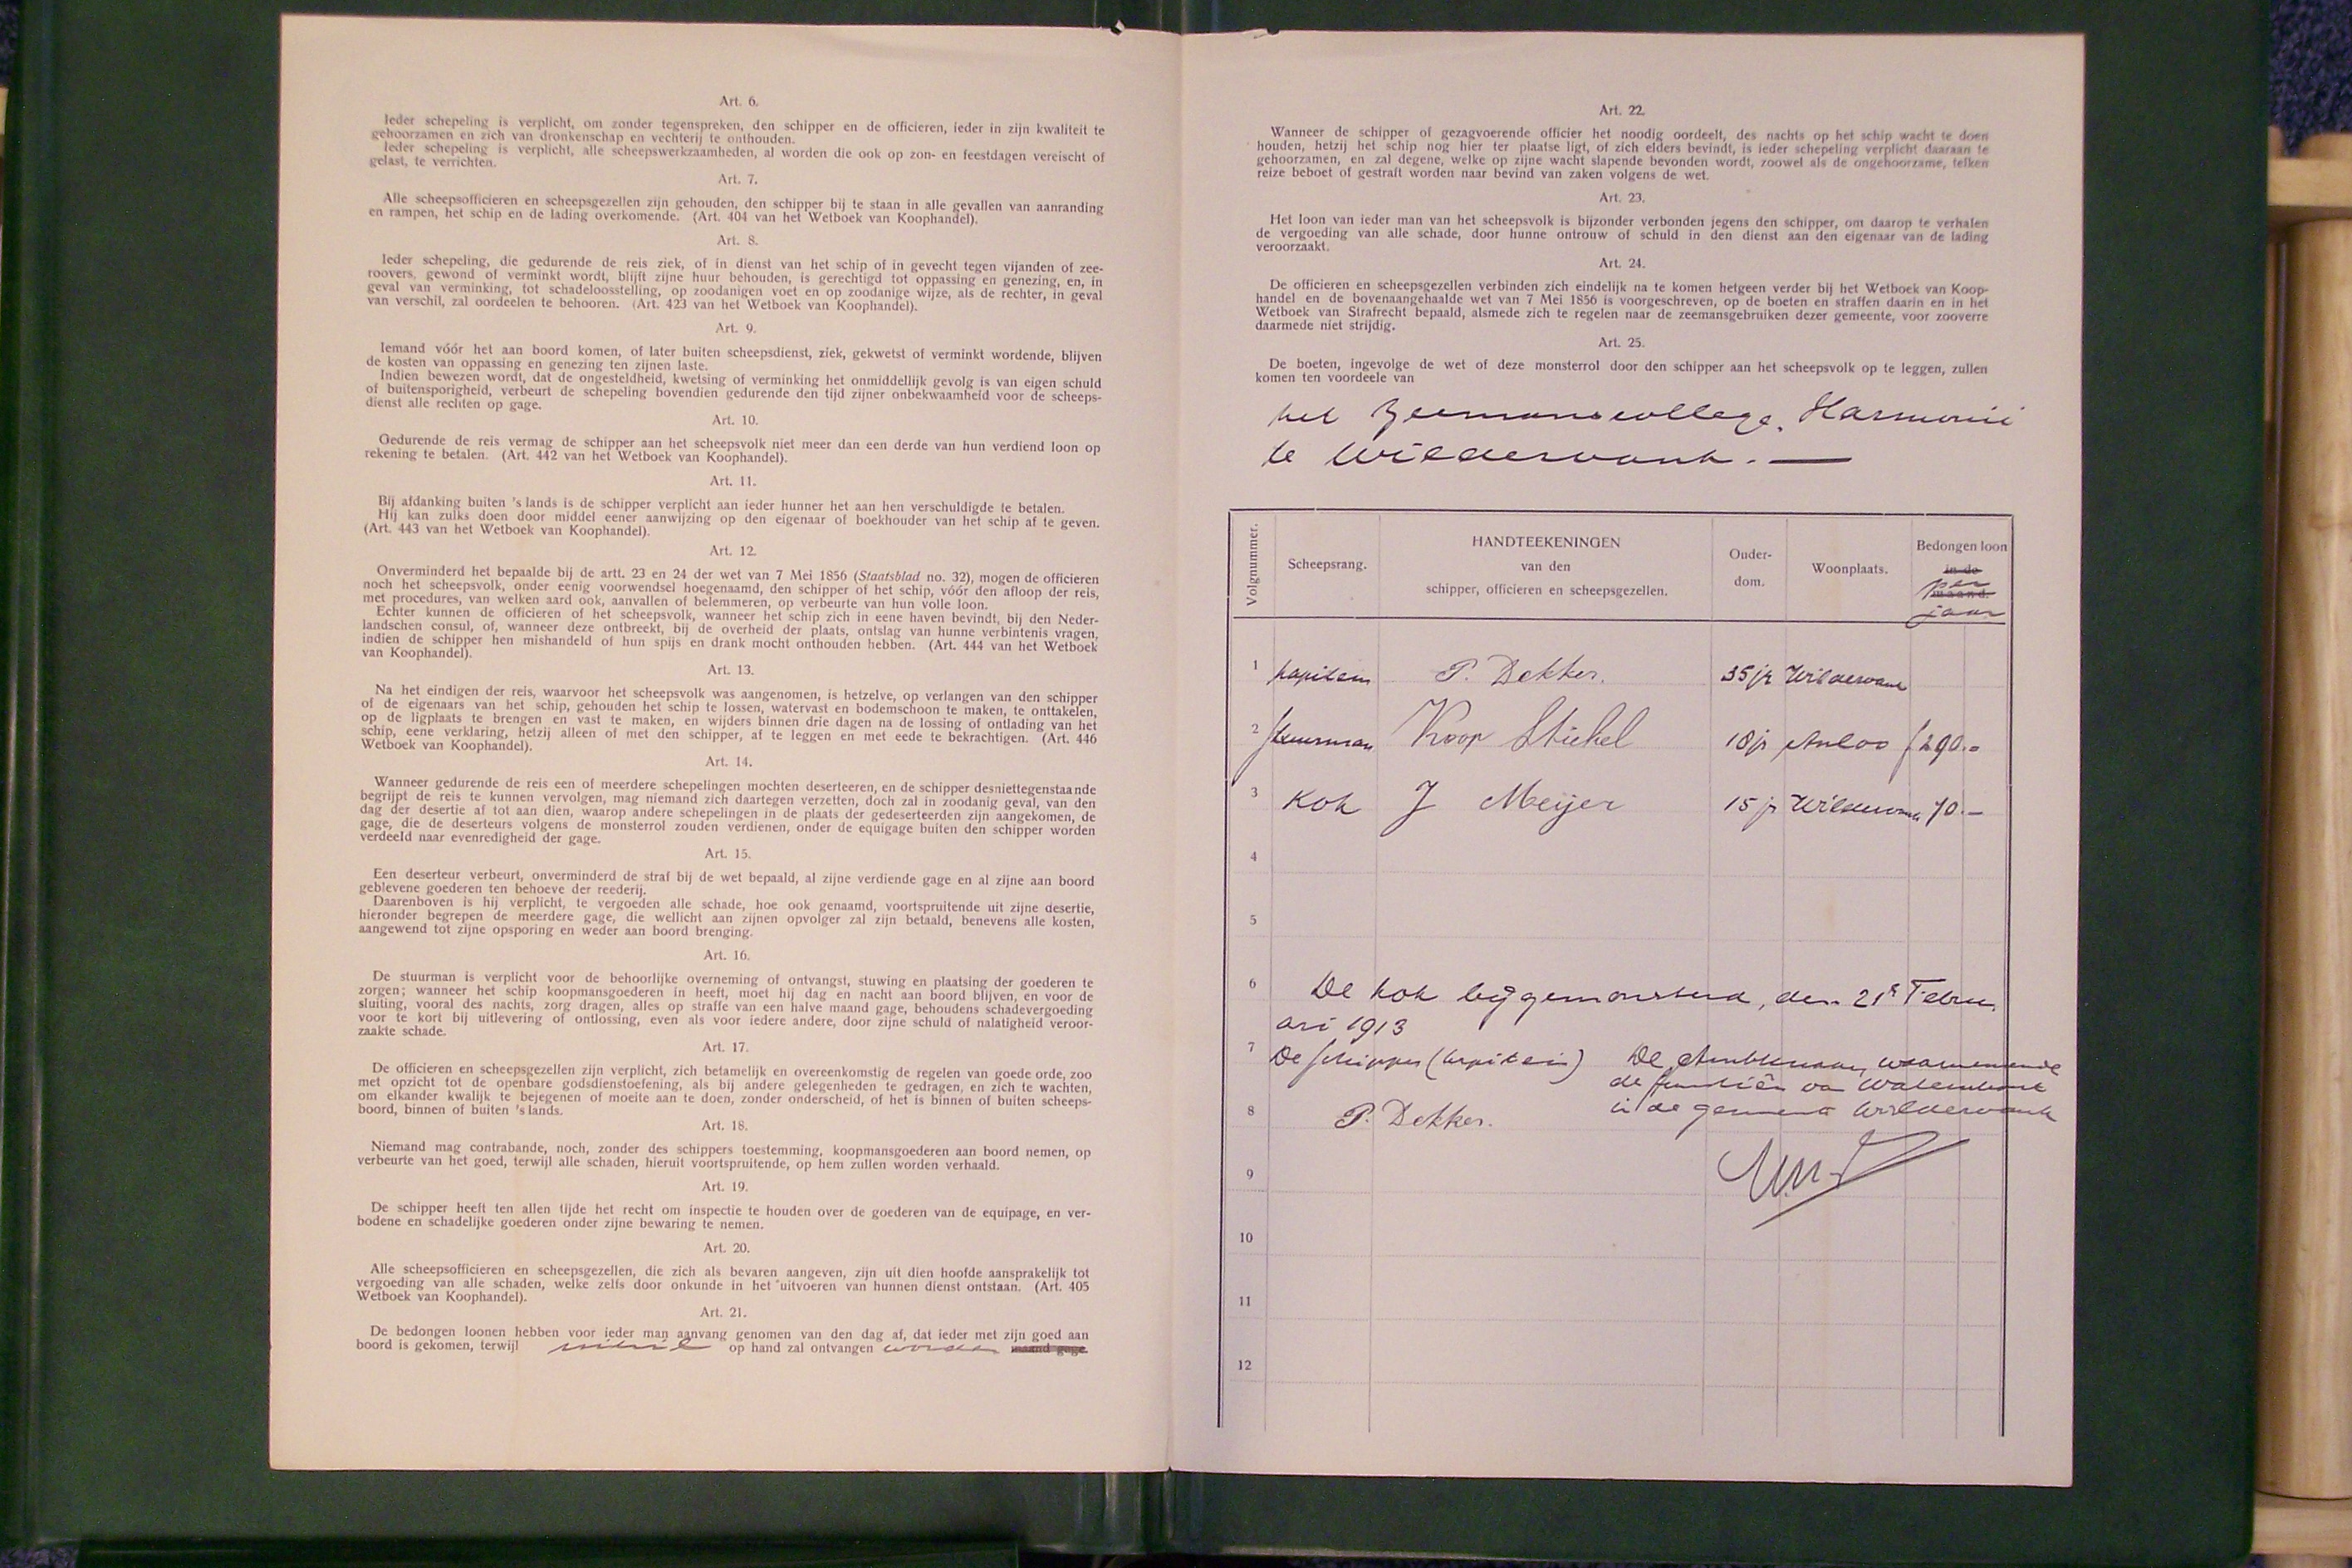 Art. 6.
Ieder schepeling is verplicht, om zonder tegenspreken, den schipper en de officieren, ieder in zijn kwaliteit te
gehoorzamen en zich van dronkenschap en vechterij te onthouden.
Ieder schepeling is verplicht, alle scheepswerkzaamheden, al worden die ook op zon- en feestdagen vereischt of
gelast, te verrichten.
Art. 7.
Alle scheepsofficieren en scheepsgezellen zijn gehouden, den schipper bij te staan in alle gevallen van aanranding
en rampen, het schip en de lading overkomende. (Art. 404 van het Wetboek van Koophandel).
Art. 8.
Ieder schepeling, die gedurende de reis ziek, of in dienst van het schip of in gevecht tegen vijanden of zee-
roovers, gewond of verminkt wordt, blijft zijne huur behouden, is gerechtigd tot oppassing en genezing, en, in
geval van verminking, tot schadeloosstelling, op zoodanigen voet en op zoodanige wijze, als de rechter, in geval
van verschil, zal oordeelen te behooren. (Art. 423 van het Wetboek van Koophandel).
Art. 9.
Iemand vóór het aan boord komen, of later buiten scheepsdienst, ziek, gekwetst of verminkt wordende, blijven
de kosten van oppassing en genezing ten zijnen laste.
Indien bewezen wordt, dat de ongesteldheid, kwetsing of verminking het onmiddellijk gevolg is van eigen schuld
of buitensporigheid, verbeurt de schepeling bovendien gedurende den tijd zijner onbekwaamheid voor de scheeps-
dienst alle rechten op gage.
Art. 10.
Gedurende de reis vermag de schipper aan het scheepsvolk niet meer dan een derde van hun verdiend loon op
rekening te betalen. (Art. 442 van het Wetboek van Koophandel).
Art. 11.
Bij afdanking buiten 's lands is de schipper verplicht aan ieder hunner het aan hen verschuldigde te betalen.
Hij kan zulks doen door middel eener aanwijzing op den eigenaar of boekhouder van het schip af te geven.
(Art. 443 van het Wetboek van Koophandel).
Art. 12.
Onverminderd het bepaalde bij de artt. 23 en 24 der wet van 7 Mei 1856 (Staatsblad no. 32), mogen de officieren
noch het scheepsvolk, onder eenig voorwendsel hoegenaamd, den schipper of het schip, vóór den afloop der reis,
met procedures, van welken aard ook, aanvallen of belemmeren, op verbeurte van hun volle loon.
Echter kunnen de officieren of het scheepsvolk, wanneer het schip zich in eene haven bevindt, bij den Neder-
landschen consul, of, wanneer deze ontbreekt, bij de overheid der plaats, ontslag van hunne verbintenis vragen,
indien de schipper hen mishandeld of hun spijs en drank mocht onthouden hebben. (Art. 444 van het Wetboek
van Koophandel).
Art. 13.
Na het eindigen der reis, waarvoor het scheepsvolk was aangenomen, is hetzelve, op verlangen van den schipper
of de eigenaars van het schip, gehouden het schip te lossen, watervast en bodemschoon te maken, te onttakelen,
op de ligplaats te brengen en vast te maken, en wijders binnen drie dagen na de lossing of ontlading van het
schip, eene verklaring, hetzij alleen of met den schipper, af te leggen en met eede te bekrachtigen. (Art. 446
Wetboek van Koophandel).
Art. 14.
Wanneer gedurende de reis een of meerdere schepelingen mochten deserteeren, en de schipper desniettegenstaande
begrijpt de reis te kunnen vervolgen, mag niemand zich daartegen verzetten, doch zal in zoodanig geval, van den
dag der desertie af tot aan dien, waarop andere schepelingen in de plaats der gedeserteerden zijn aangekomen, de
gage, die de deserteurs volgens de monsterrol zouden verdienen, onder de equigage buiten den schipper worden
verdeeld naar evenredigheid der gage.
Art. 15.
Een deserteur verbeurt, onverminderd de straf bij de wet bepaald, al zijne verdiende gage en al zijne aan boord
geblevene goederen ten behoeve der reederij.
Daarenboven is hij verplicht, te vergoeden alle schade, hoe ook genaamd, voortspruitende uit zijne desertie,
hieronder begrepen de meerdere gage, die wellicht aan zijnen opvolger zal zijn betaald, benevens alle kosten,
aangewend tot zijne opsporing en weder aan boord brenging.
Art. 16.
De stuurman is verplicht voor de behoorlijke overneming of ontvangst, stuwing en plaatsing der goederen te
zorgen; wanneer het schip koopmansgoederen in heeft, moet hij dag en nacht aan boord blijven, en voor de
sluiting, vooral des nachts, zorg dragen, alles op straffe van een halve maand gage, behoudens schadevergoeding
voor te kort bij uitlevering of ontlossing, even als voor iedere andere, door zijne schuld of nalatigheid veroor-
zaakte schade.
Art. 17.
De officieren en scheepsgezellen zijn verplicht, zich betamelijk en overeenkomstig de regelen van goede orde, zoo
met opzicht tot de openbare godsdienstoefening, als bij andere gelegenheden te gedragen, en zich te wachten,
om elkander kwalijk te bejegenen of moeite aan te doen, zonder onderscheid, of het is binnen of buiten scheeps-
boord, binnen of buiten 's lands.
Art. 18.
Niemand mag contrabande, noch, zonder des schippers toestemming, koopmansgoederen aan boord nemen, op
verbeurte van het goed, terwijl alle schaden, hieruit voortspruitende, op hem zullen worden verhaald.
Art. 19.
De schipper heeft ten allen tijde het recht om inspectie te houden over de goederen van de equipage, en ver-
bodene en schadelijke goederen onder zijne bewaring te nemen.
Art. 20.
Alle scheepsofficieren en scheepsgezellen, die zich als bevaren aangeven, zijn uit dien hoofde aansprakelijk tot
vergoeding van alle schaden, welke zelfs door onkunde in het uitvoeren van hunnen dienst ontstaan. (Art. 405
Wetboek van Koophandel).
Art. 21.
De bedongen loonen hebben voor ieder man aanvang genomen van den dag af, dat ieder met zijn goed aan
boord is gekomen, terwijl op hand zal ontvangen worden maand gage.
Art. 22.
Wanneer de schipper of gezagvoerende officier het noodig oordeelt, des nachts op het schip wacht te doen
houden, hetzij het schip nog hier ter plaatse ligt, of zich elders bevindt, is ieder schepeling verplicht daaraan te
gehoorzamen, en zal degene, welke op zijne wacht slapende bevonden wordt, zoowel als de ongehoorzame, telken
reize beboet of gestraft worden naar bevind van zaken volgens de wet.
Art. 23.
Het loon van ieder man van het scheepsvolk is bijzonder verbonden jegens den schipper, om daarop te verhalen
de vergoeding van alle schade, door hunne ontrouw of schuld in den dienst aan den eigenaar van de lading
veroorzaakt.
Art. 24.
De officieren en scheepsgezellen verbinden zich eindelijk na te komen hetgeen verder bij het Wetboek van Koop-
handel en de bovenaangehaalde wet van 7 Mei 1856 is voorgeschreven, op de boeten en straffen daarin en in het
Wetboek van Strafrecht bepaald, alsmede zich te regelen naar de zeemansgebruiken dezer gemeente, voor zooverre
daarmede niet strijdig.
Art. 25.
De boeten, ingevolge de wet of deze monsterrol door den schipper aan het scheepsvolk op te leggen, zullen
komen ten voordeele van
het Zeemanscollege Harmonie
te Wildervank.
Volgnummer. Scheepsrang. HANDTEEKENINGEN van den schipper, officieren en scheepsgezellen. Ouder-dom. Woonplaats. Bedongen loon in de maand. per jaar
1 kapitein P. Dekker. 35 jr Wildervank
2 stuurman Koop Stichel 18 jr Anloo f 290.-
3 Kok J Meijer 15 jr Wildervank 70.-
4
5
6 De kok bijgemonsterd, den 21e Febru-
ari 1913
7 De schipper (kapitein) De Ambtenaar, waarnemende
de functiën van Waterschout
8 P. Dekker. in de gemeente Wildervank
9
10
11
12